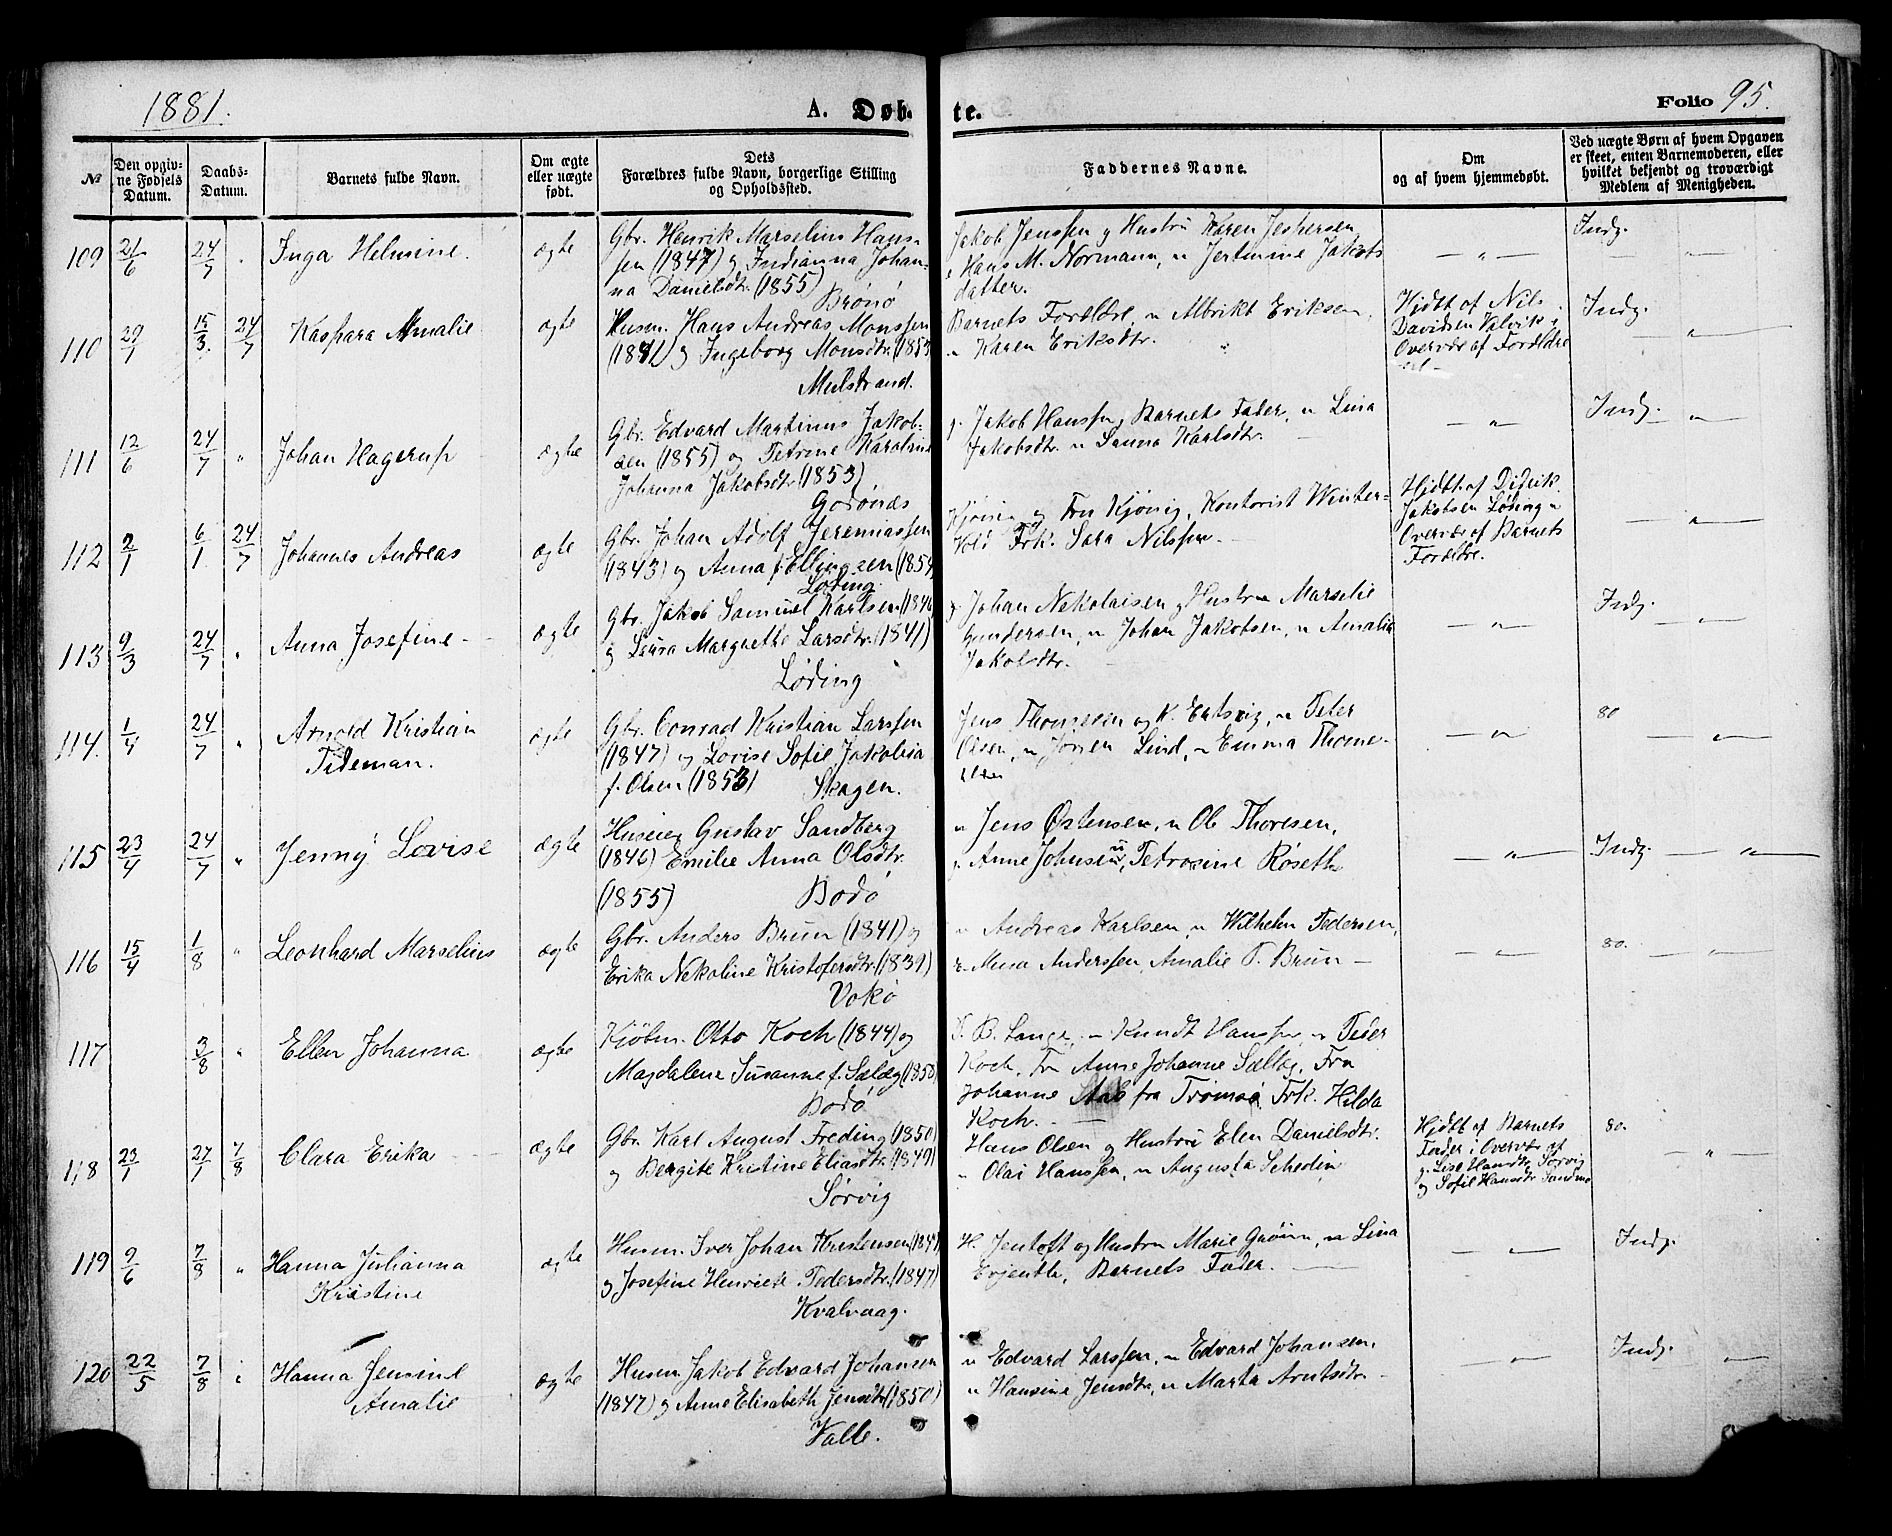 1881.
A. Døb-
te.
Folio 95.
№
Den opgiv-
ne Fødsels
Datum.
Daabs-
Datum.
Barnets fulde Navn.
Om ægte
eller uægte
født.
Dets
Forældres fulde Navn, borgerlige Stilling
og Opholdssted.
Faddernes Navne.
Om
og af hvem hjemmedøbt.
Ved uægte Børn af hvem Opgaven
er skeet, enten Barnemoderen, eller
hvilket bekjendt og troværdigt
Medlem af Menigheden.
109 21/6 24/7 " Inga Helmine. ægte
Gbr. Henrik Marselius Hans-
sen (1847) og Indianna Johan-
na Danielsdtr. (1855)
Brønø
Jakob Jenssen og Hustru Karen Jespersen
Hans M. Normann, " Jertmine Jakobs
datter.
— " —
Indg.
— " —
110 29/1 15/3. 24/7 Kaspara Amalie ægte
Husm. Hans Andreas Monssen
(1841) og Ingeborg Monsdtr. (1853
Mulstrand.
Barnets Forældre, " Albrikt Eriksen,
" Karen Eriksdtr.
Hjdbt af Nils
Davidsen Valvik i
Overvær af Forældre
Indg.
— " —
111 12/6 24/7 " Johan Hagerup ægte
Gbr. Edvard Martinus Jakob-
sen (1855) og Petrine Karoline
Johanna Jakobsdtr. (1853)
Godønæs
g. Jakob Hanssen, Barnets Fader, " Lina
Jakobsdtr. " Sanna Karlsdtr. —
— " —
Indg. — " —
112 2/1 6/1 24/7 Johannes Andreas ægte
Gbr. Johan Adolf Jeremiassen
(1843) og Anna f. Ellingsen (1854)
Løding.
og Fru Kjønig, Kontorist Winter-
Vold Frk. Sara Nilssen. —
Hjdbt af Didrik
Jakobsen Løding i
Overvær af Barnets
Forældre.
— " —
113 9/3 24/7 " Anna Josefine — ægte
Gbr. Jakob Samuel Karlsen (1846
og Laura Margrethe Larsdtr. (1841)
Løding
g. Johan Nekolaisen og Hustru Marselie
Gundersen, " Johan Jakobsen, " Amalia
Jakobsdtr. —
— " —
Indg.
— " —
114. 1/4 24/7 " Arnold Kristian
Tideman. ægte
Gbr. Conrad Kristian Larssen
(1847) og Lovise Sofie Jakobina
f. Olsen (1853)
Skagen.
Jens Thomesen og K. Ertsvig, " Peter
Olsen, " Jørgen Lind, " Emma Thome-
— " —
80
— " —
115 23/4 24/7 " Jenny Lovise ægte
Huseier Gustav Sandberg
(1846) Emilie Anna Olsdtr.
(1855) Bodø
" Jens Østensen, " Ole Thoresen,
g. Anne Johnsen, Petrosine Røseth
— " —
Indg. — " —
116 15/4 1/8 " Leonhard Marselius ægte
Gbr. Anders Brun (1841) og
Erika Nekoline Kristofersdtr. (1839)
Vokø
" Andreas Karlsen, " Wilhelm Pedersen,
Anna Anderssen, Amalie P. Brun —
— " —
80.
— " —
117 3/8 " Ellen Johanna ægte
Kjøbm. Otto Koch (1844) og
Magdalene Susanne f. Sælag (1850)
Bodø
B. Lange, — Kundt Hanssen, " Peder
Koch, Fru Anne Johanne Sælag, Fru
Johanne fra Tromsø, Frk. Hilda
Koch. —
118 23/1 27/7 7/8 Clara Erika — ægte
Gbr. Karl August Freding (1850)
og Bergite Kristine Eliasdtr. (1849)
Sørvig
Hans Olsen og Hustru Elen Danielsdtr.
" Olai Hanssen, " Augusta Schedin
Hjdbt af Barnets
Fader i Overvær af
g. Lise Hansdtr. Sørvig
og Sofie Hansdtr. Sandmo
80.
— " —
119 9/6 7/8 " Hanna Julianna
Kristine ægte
Husm. Iver Johan Kristensen (1841)
og Josefine Henriette Pedersdtr. (1847)
Kvalvaag.
H. Jentoft og Hustru Marie Grønn, " Lina
Evjenth, Barnets Fader. —
— " —
Indg.
120 22/5 7/8 " Hanna Jensine
Amalie ægte
Husm. Jakob Edvard Johansen
(1847) og Anne Elisabeth Jensdtr. (1850)
Valle.
" Edvard Larssen, " Edvard Johansen,
" Hansine Jensdtr., " Marta Arntsdtr. —
— " —
Indg.
— " —